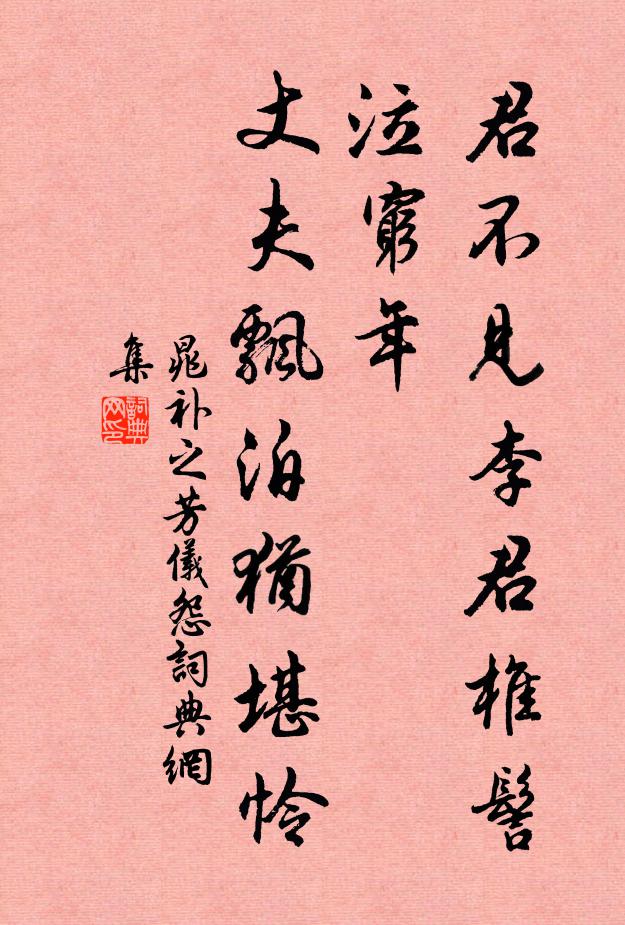 君不見李君椎髻
泣窮年
丈夫飄泊猶堪怜
晁補之芳儀怨詞典網
集
詞典網印